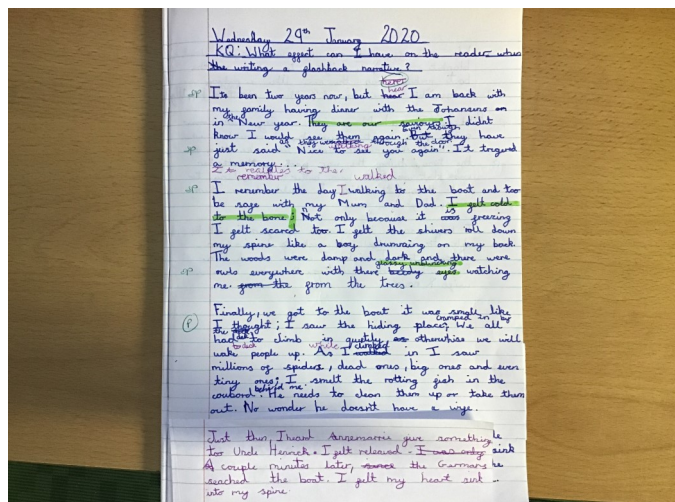 Wednesday 29th January 2020
KQ: What effect can I have on the reader when
the writing a flashback narrative?
never
Its been two years now, but hear I am back with
my family having dinner with the Johansens on
in the New year. They are our saviours I didnt
know I would see them again. But they have
as they welcomed through the door
just said "Nice to see you again". It trigered
a memory...
remember walked
I remember the day I walking to the boat and too
be sage with my Mum and Dad. I felt cold
to the bone. Not only because it is freezing
I felt scared too. I felt the shivers roll down
my spine like a boy drumming on my back.
The woods were damp and dark and there were
glassy unblinking
owls everywhere with there beady eyes watching
me from the from the trees.
Finally, we got to the boat it was small like
cramped in by
I thought; I saw the hiding place, We all
had to climb in quietly, as otherwhise we will
to deck while climbed
wake people up. As I walked in I saw
millions of spiders, dead ones, big ones and even
tiny ones; I smelt the rotting fish in the
behind me
coubord. He needs to clean them up or take them
out. No wonder he doesn't have a wife.
Just then, I heard Annemarrie give something
too Uncle Henrick. I felt released. I was only sink
A couple minutes later, since the Germans
reached the boat. I felt my heart sink
into my spine.